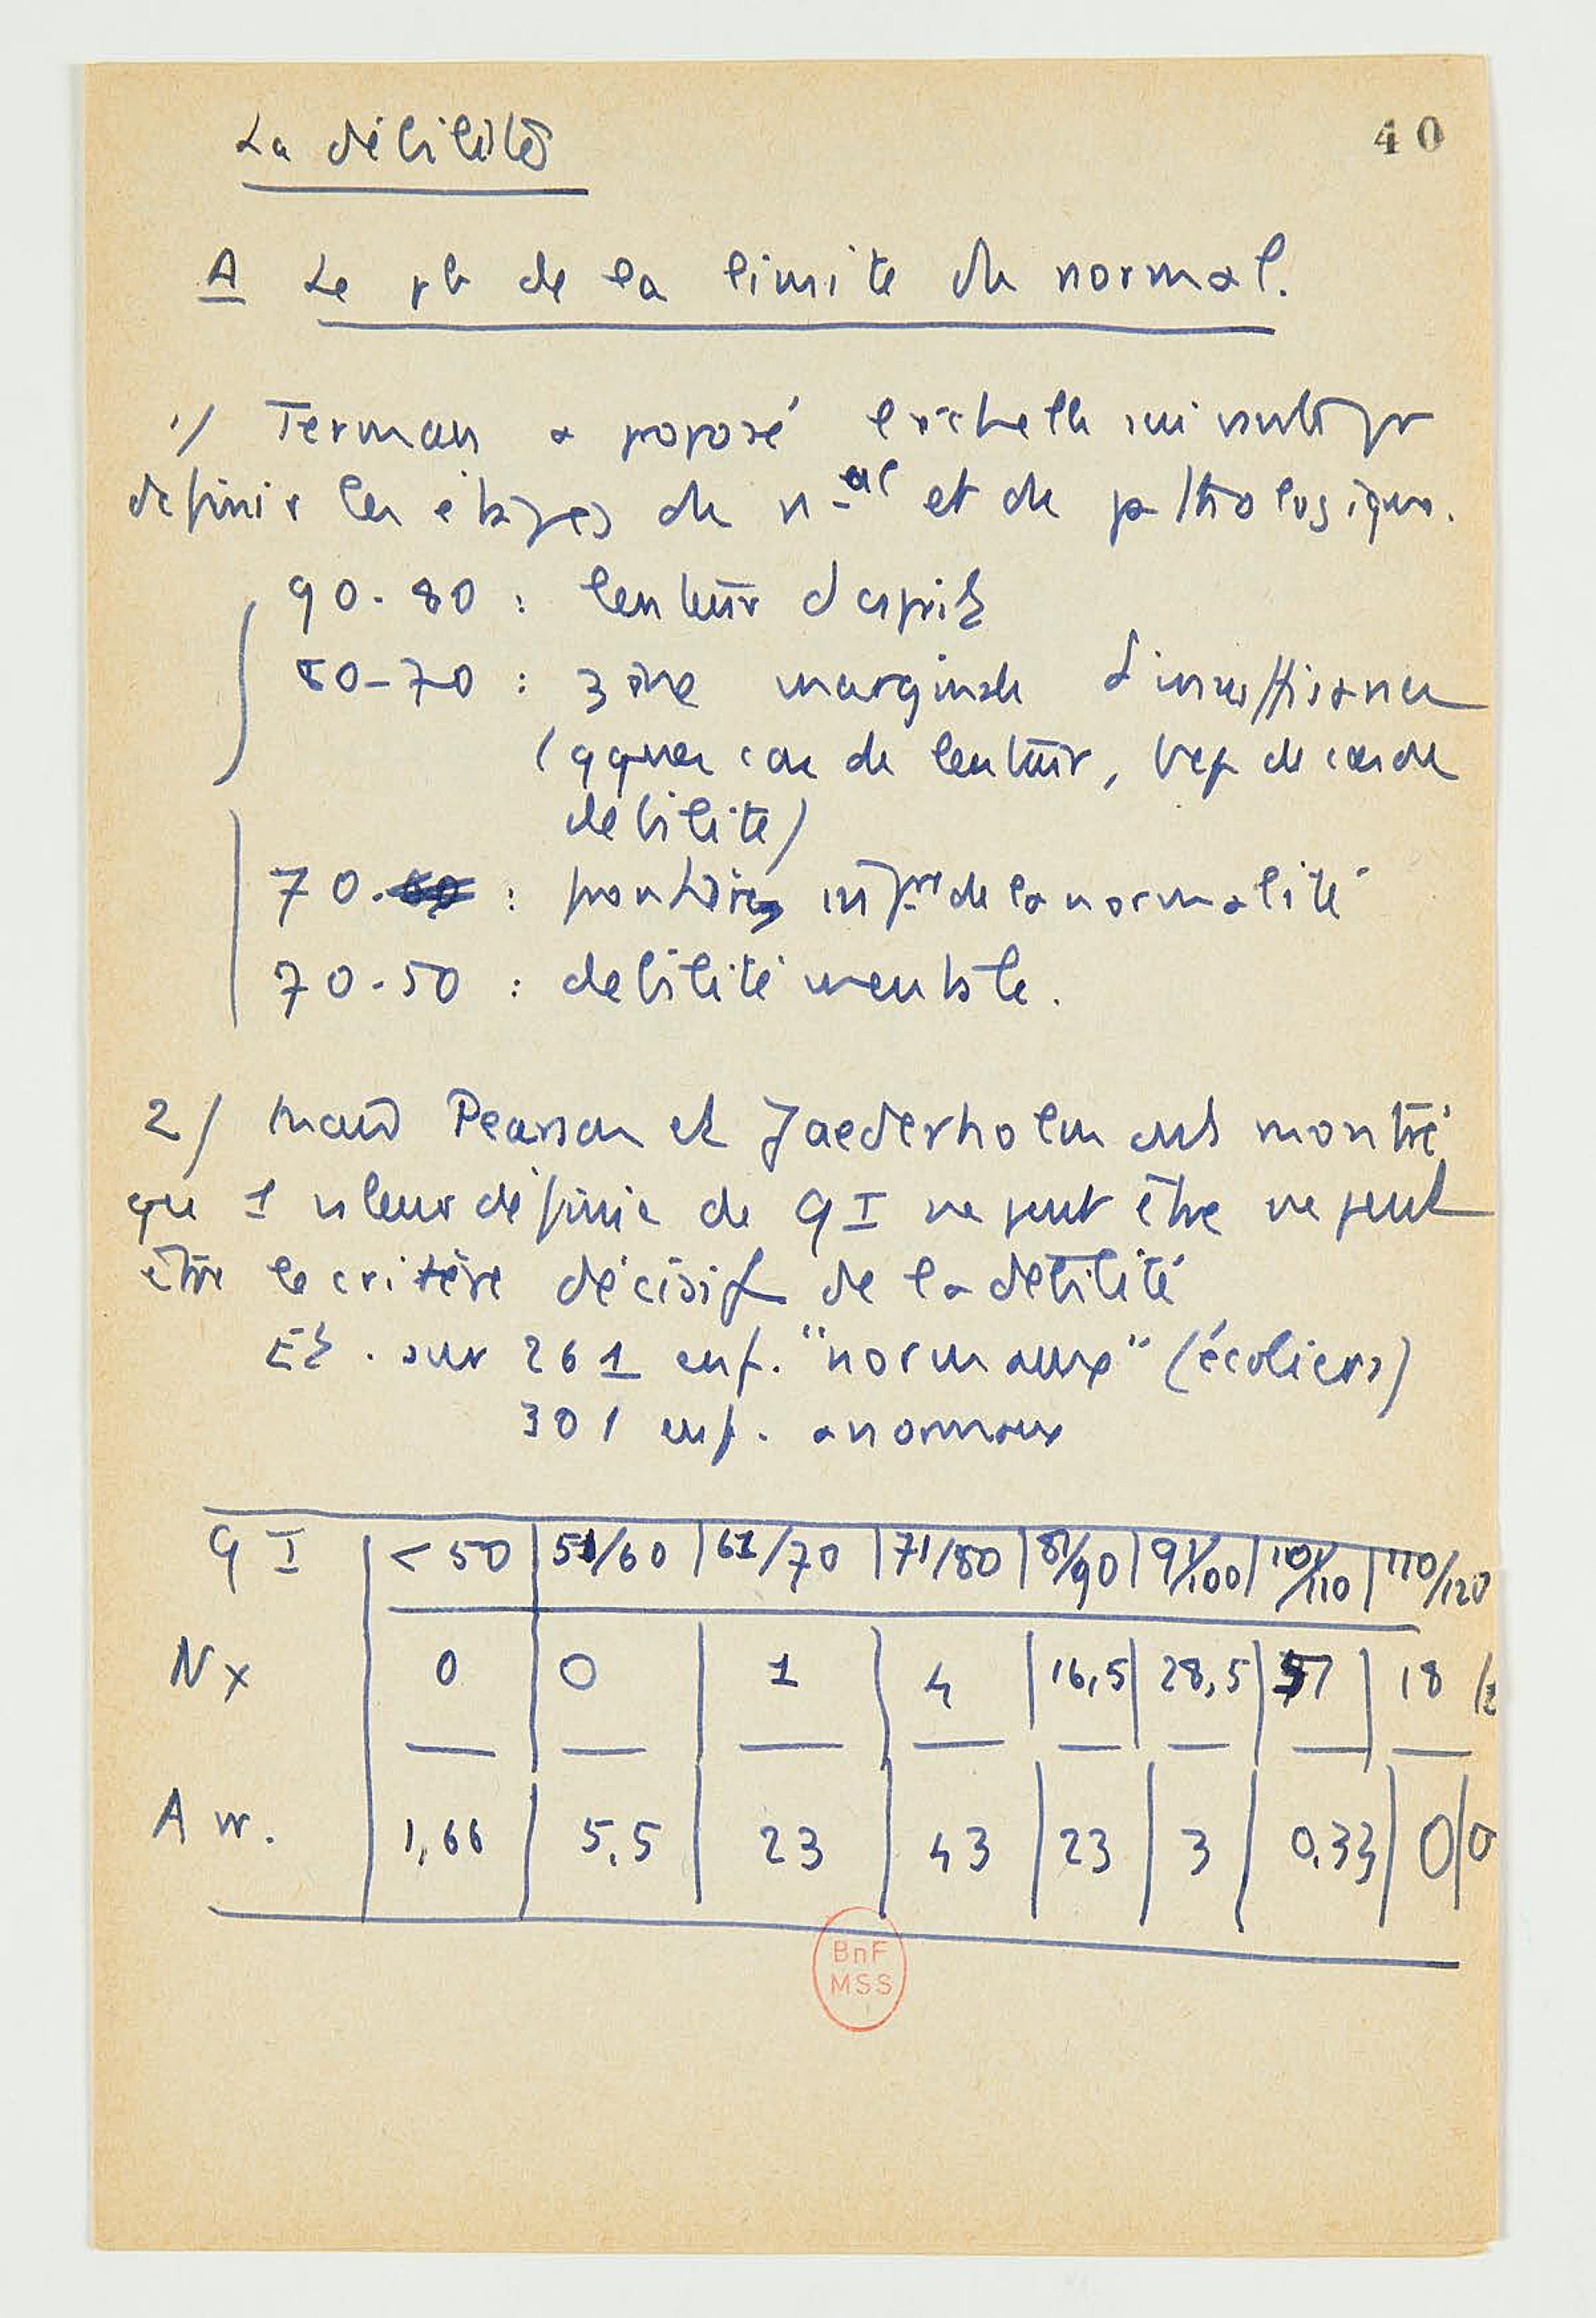 La débilité
40
A Le pb de la limite du normal.
1/ Terman a proposé l'echelle suivante pr
definir les étages du n-al et du pathologique.
90-80 : lenteur d'esprit
80-70 : zône marginale d'insuffisance
(qques cas de lenteur, bcp de cas de
debilité)
70 : frontière infre de la normalité
70-50 : debilité mentale.
2/ mais Pearson et Jaederholm ont montré
que 1 valeur définie de QI ne peut être ne peut
être le critère décisif de la debilité
Et. sur 261 enf. "normaux" (écoliers)
301 enf. anormaux
QI | <50 | 51/60 | 61/70 | 71/80 | 81/90 | 91/100 | 101/110 | 110/120
Nx | 0 | 0 | 1 | 4 | 16,5 | 28,5 | | 18
A nx. | 1,66 | 5,5 | 23 | 43 | 23 | 3 | 0,33 | 0 | 0
BnF
MSS